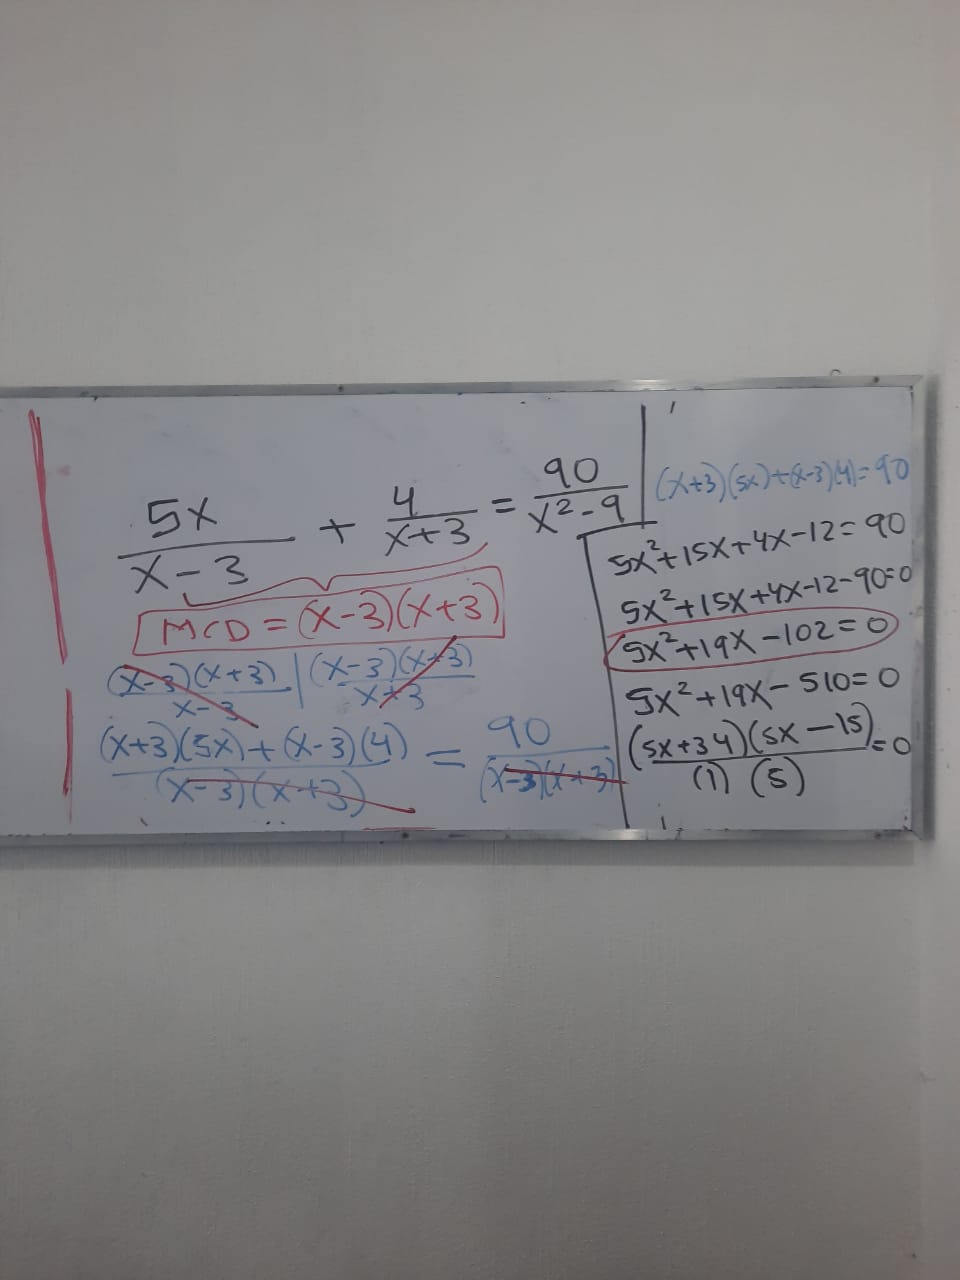 5x/(x-3) + 4/(x+3) = 90/(x²-9)
MCD = (x-3)(x+3)
(x-3)(x+3)/(x-3) | (x-3)(x+3)/(x+3)
((x+3)(5x)+(x-3)(4))/((x-3)(x+3)) = 90/((x-3)(x+3))
(x+3)(5x)+(x-3)(4)=90
5x²+15x+4x-12=90
5x²+15x+4x-12-90=0
5x²+19x-102=0
5x²+19x-510=0
(5x+34)(5x-15)/(1)(5)=0